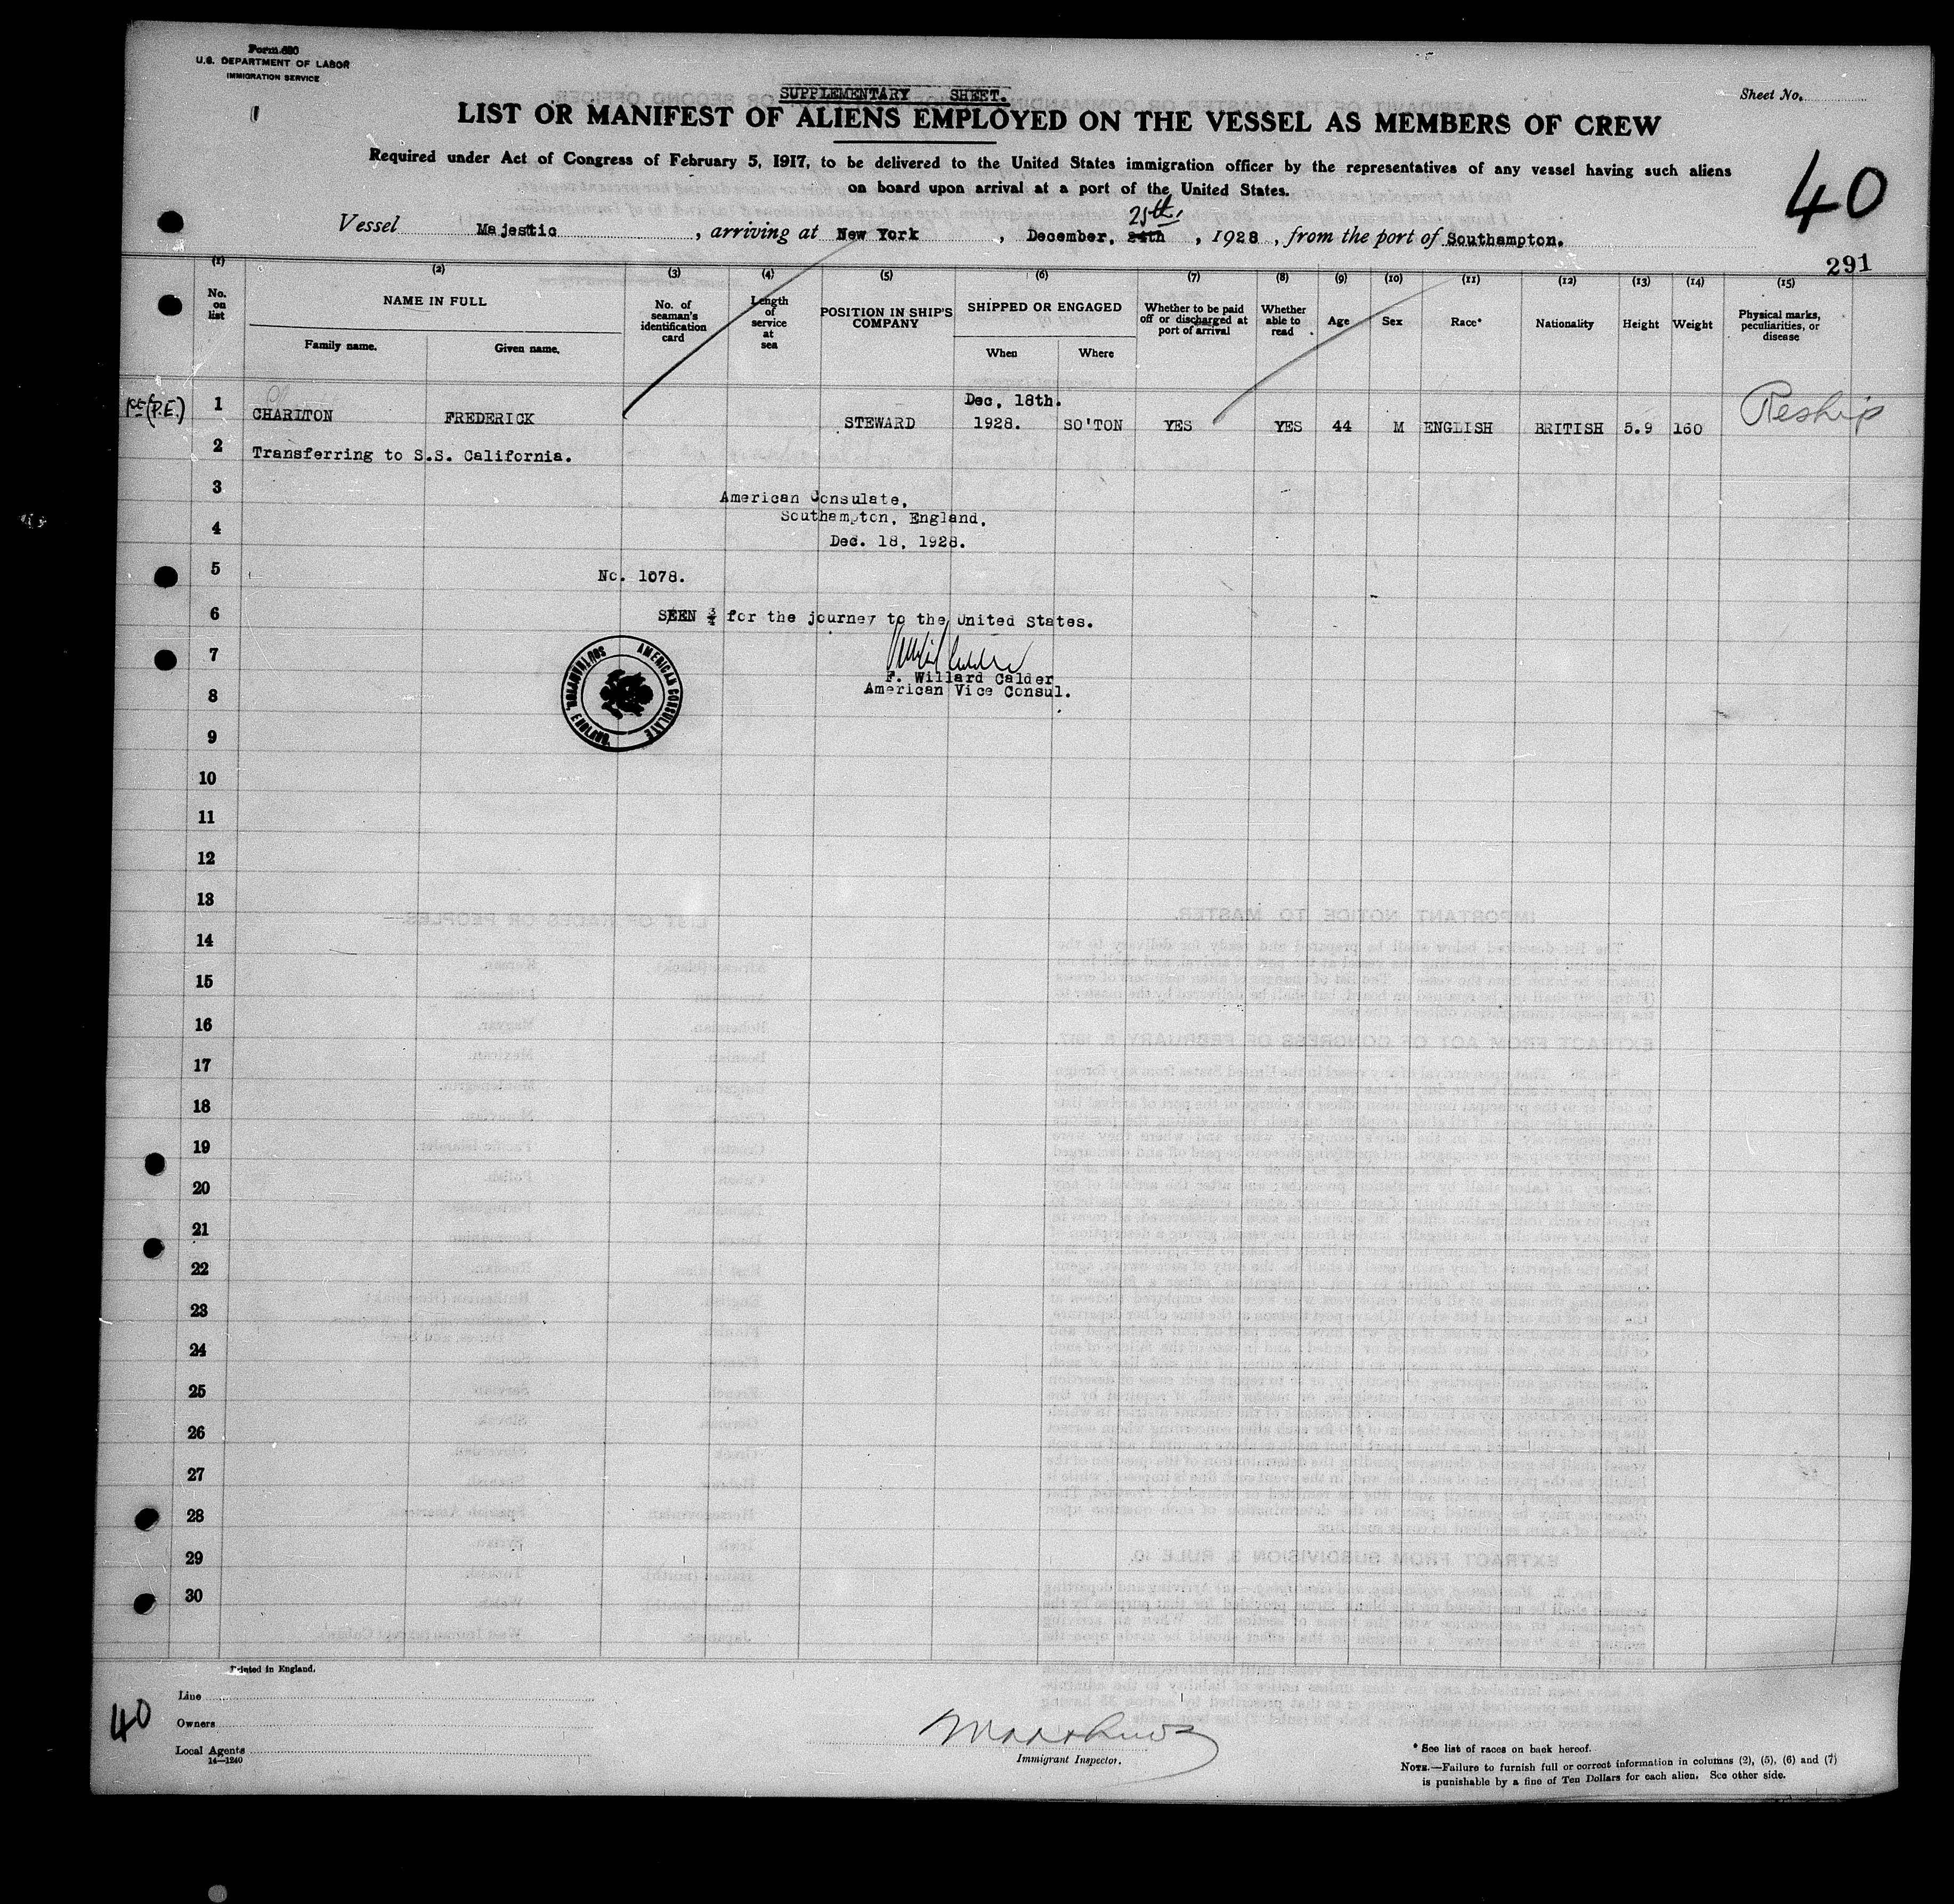 Form 680
U.S. DEPARTMENT OF LABOR
IMMIGRATION SERVICE
SUPPLEMENTARY SHEET.
Sheet No.
LIST OR MANIFEST OF ALIENS EMPLOYED ON THE VESSEL AS MEMBERS OF CREW
Required under Act of Congress of February 5, 1917, to be delivered to the United States immigration officer by the representatives of any vessel having such aliens
on board upon arrival at a port of the United States.
40
25th.
Vessel Majestic, arriving at New York, December, 24th, 1928, from the port of Southampton.
291
(1) (2) (3) (4) (5) (6) (7) (8) (9) (10) (11) (12) (13) (14) (15)
No. on list
NAME IN FULL
Family name. Given name.
No. of seaman's identification card
Length of service at sea
POSITION IN SHIP'S COMPANY
SHIPPED OR ENGAGED
When Where
Whether to be paid off or discharged at port of arrival
Whether able to read
Age
Sex
Race*
Nationality
Height
Weight
Physical marks, peculiarities, or disease
1st (P.E.) 1 CHARLTON FREDERICK STEWARD Dec, 18th. 1928. SO'TON YES YES 44 M ENGLISH BRITISH 5.9 160 Reship
2 Transferring to S.S. California.
3 American Consulate,
Southampton, England,
4 Dec. 18, 1928.
5 No. 1078.
6 SEEN for the journey to the United States.
7
F. Willard Calder
8 American Vice Consul.
AMERICAN CONSULATE SOUTHAMPTON, ENGLAND.
9
10
11
12
13
14
15
16
17
18
19
20
21
22
23
24
25
26
27
28
29
30
Printed in England.
40
Line
Owners
Local Agents
14—1240
Immigrant Inspector.
* See list of races on back hereof.
NOTE.—Failure to furnish full or correct information in columns (2), (5), (6) and (7)
is punishable by a fine of Ten Dollars for each alien. See other side.